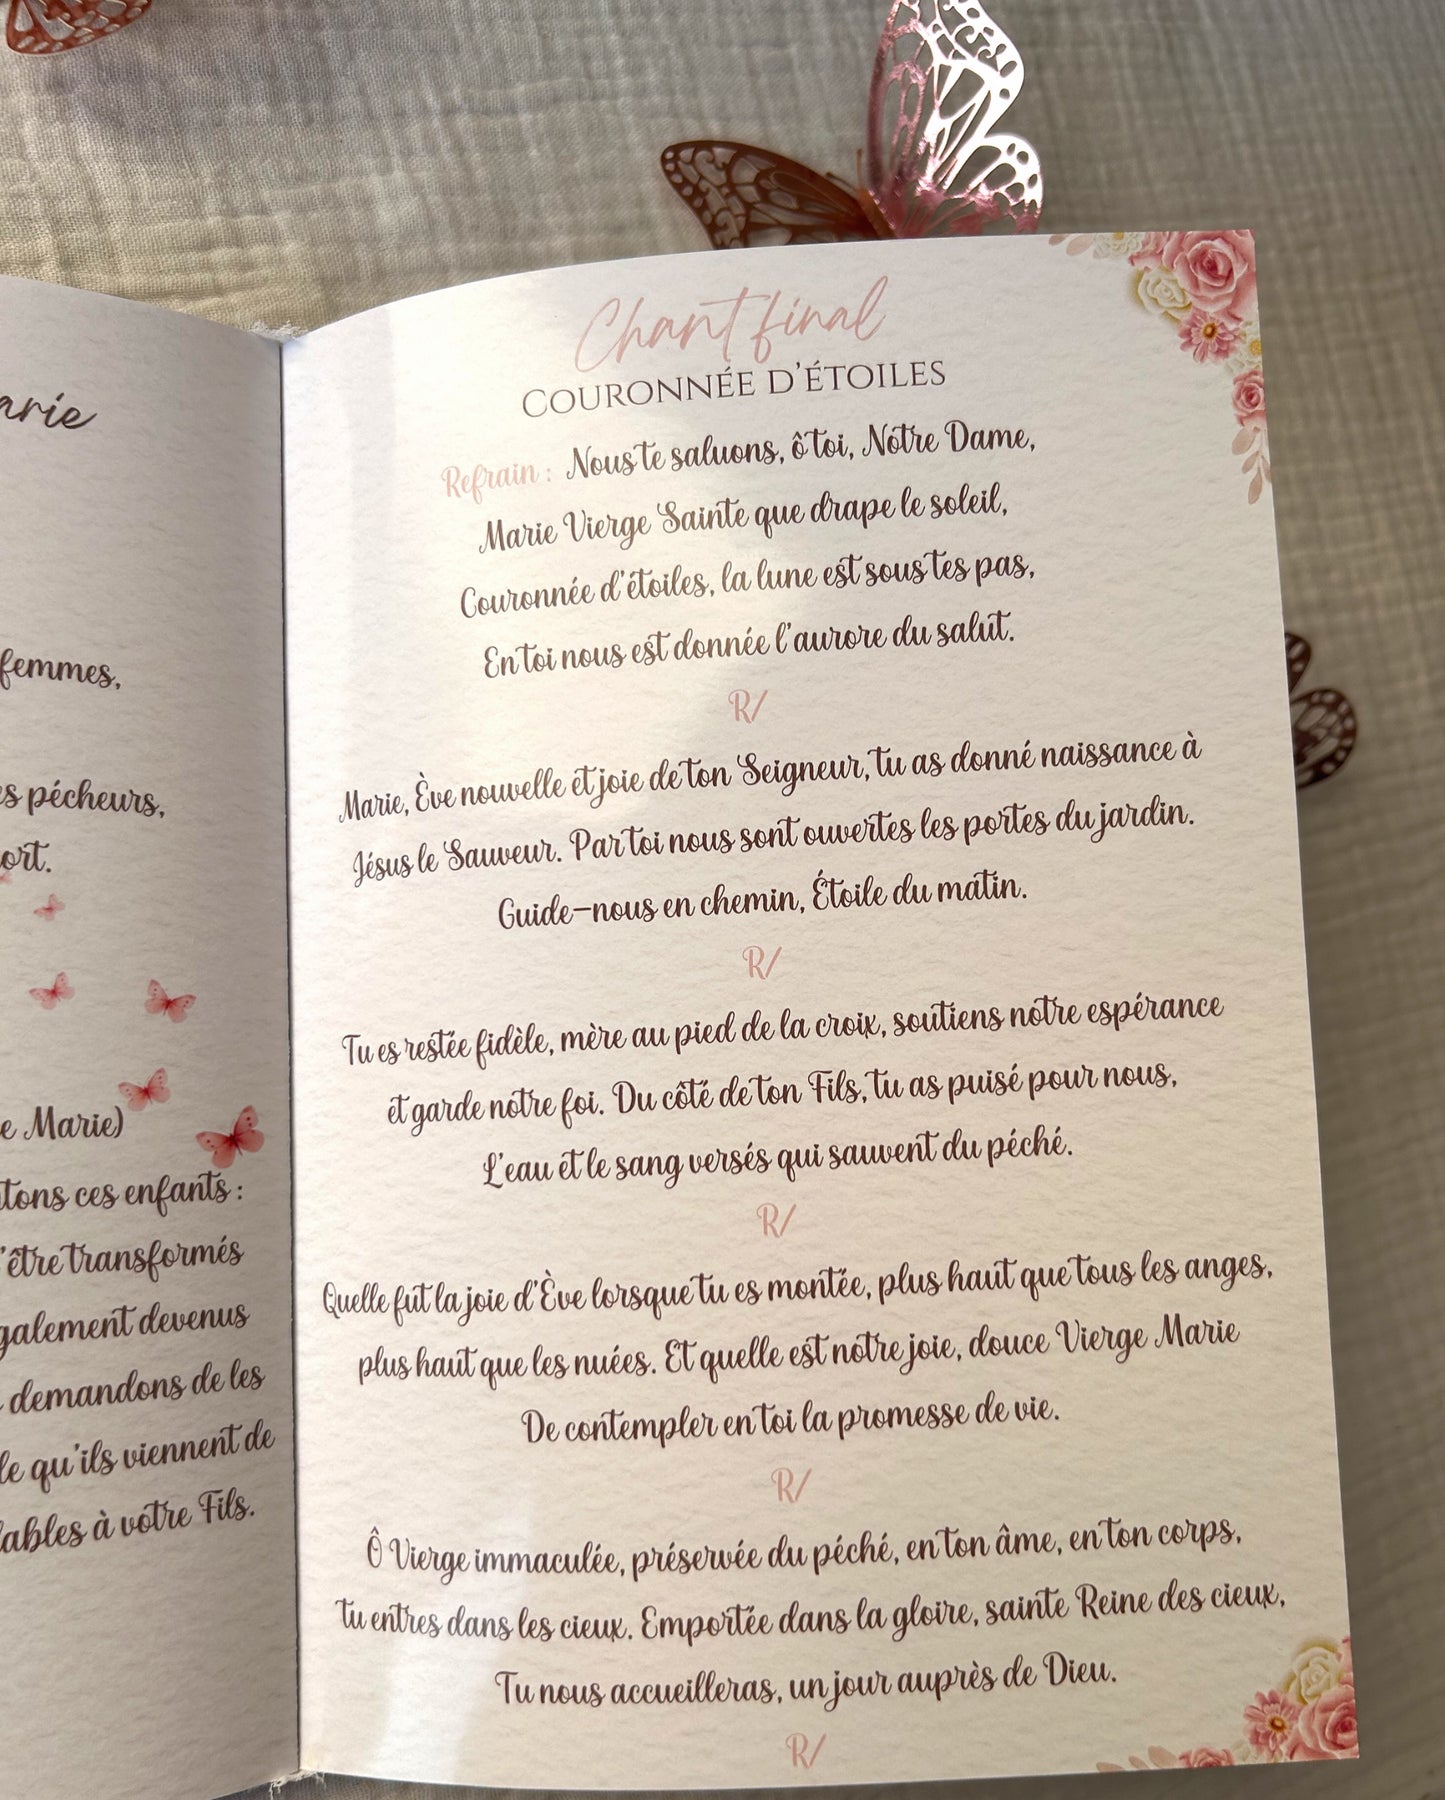 arie
femmes,
es pécheurs,
ort.
e Marie)
tons ces enfants :
'être transformés
également devenus
demandons de les
le qu'ils viennent de
ables à votre Fils.
Chant final
COURONNÉE D'ÉTOILES
Refrain : Nous te saluons, ô toi, Notre Dame,
Marie Vierge Sainte que drape le soleil,
Couronnée d'étoiles, la lune est sous tes pas,
En toi nous est donnée l'aurore du salut.
R/
Marie, Ève nouvelle et joie de ton Seigneur, tu as donné naissance à
Jésus le Sauveur. Par toi nous sont ouvertes les portes du jardin.
Guide-nous en chemin, Étoile du matin.
R/
Tu es restée fidèle, mère au pied de la croix, soutiens notre espérance
et garde notre foi. Du côté de ton Fils, tu as puisé pour nous,
L'eau et le sang versés qui sauvent du péché.
R/
Quelle fut la joie d'Ève lorsque tu es montée, plus haut que tous les anges,
plus haut que les nuées. Et quelle est notre joie, douce Vierge Marie
De contempler en toi la promesse de vie.
R/
Ô Vierge immaculée, préservée du péché, en ton âme, en ton corps,
tu entres dans les cieux. Emportée dans la gloire, sainte Reine des cieux,
Tu nous accueilleras, un jour auprès de Dieu.
R/